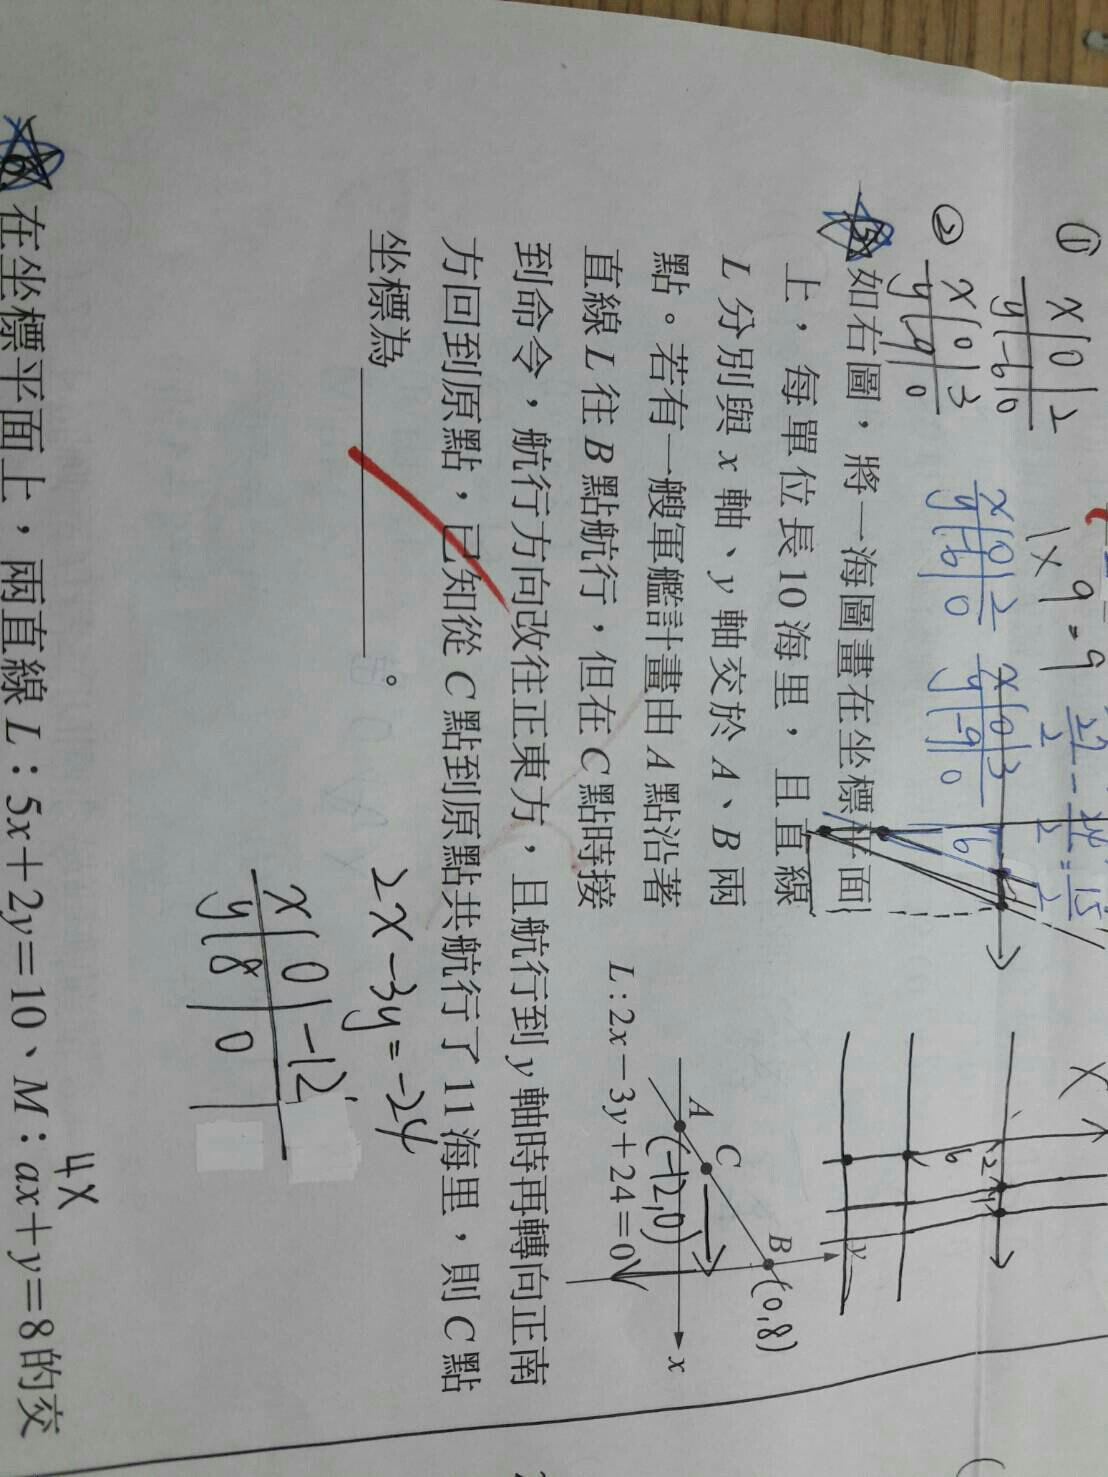 ① x | 0 | 2
y | -6 | 0
② x | 0 | 3
y | -9 | 0
x | 0 | 2
y | -6 | 0
x | 0 | 3
y | -9 | 0
如右圖，將一海圖畫在坐標平面
上，每單位長10海里，且直線
L分別與x軸、y軸交於A、B兩
點。若有一艘軍艦計畫由A點沿著
直線L往B點航行，但在C點時接
到命令，航行方向改往正東方，且航行到y軸時再轉向正南
方回到原點，已知從C點到原點共航行了11海里，則C點
坐標為＿＿＿＿＿＿。
L：2x－3y＋24＝0
A
C
B
y
x
(-12,0)
(0,8)
2x-3y=-24
x | 0 | -12
y | 8 | 0
4x
6. 在坐標平面上，兩直線L：5x＋2y＝10、M：ax＋y＝8的交